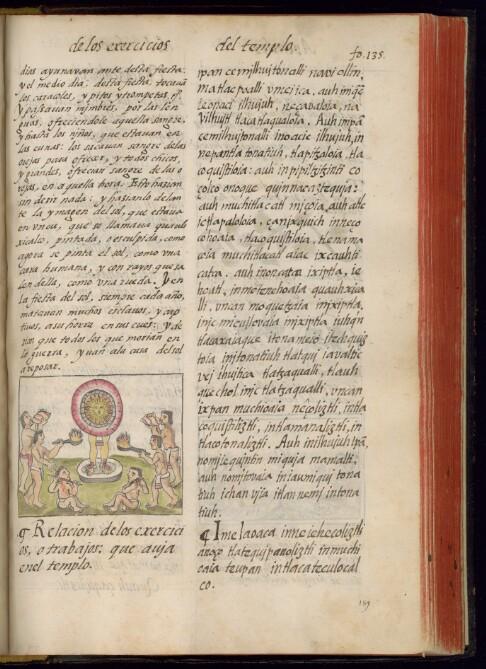 de los exercicios
del templo.
fo. 135.
dias ayunavan ante desta fiesta.
y el medio dia: desta fiesta, tocavã
los caracoles, y pitos y trompetas, &.
y passavan mimbres, por las len
guas, ofreciendole aquella sangre,
y hasta los niños, que estavan en
las cunas: los sacavan sangre de las
orejas para ofrecer, y todos chicos,
y grandes, ofrecian sangre de las o
rejas, en aquella hora. Esto hazian
sin dezir nada: y hazianlo delan
te la ymagen del sol, que estava
en vn cu, que se llamava quauh
xicalco, pintada, o esculpida, como
agora se pinta el sol, como vna
cara humana, y con rayos que sa
len della, como vna rueda. Y en
la fiesta del sol, siempre cada año,
matavan muchos esclavos, y cap
tivos, a su honrra en sus cues: y de
zian que todos los que morian en
la guerra, yvan a la casa del sol
a reposar.
¶ Relacion de los exercici
os, o trabajos, que auja
en el templo.
ipan cemjlhujtonalli navi ollin,
matlacpaalli vnce ica, auh
ilhujuh, neçaoaloia, na
vilhujtl tlacatlaqualoia. Auh impã
cemilhujtonalli inoacic ilhujuh, in
nepantla tonatiuh, tlapitzaloia, tla
coqujstiloia: auh in pipiltzitzinti co
çolco onoque quinnacaztequja:
auh muchitlacatl mjçoia, auh atle
ic tlapaloloia, çan ixqujch in neço
çohoaia, tlacoqujstiloia, tlenama
coia muchitlacatl aiac ixcauhti
catca. auh inoncatca ixiptla, ie
hoatl, inmotenehoaia quauhxica
lli, vncan moquetzaia imixiptla,
injc micujlovaia imjxiptla iuhqn
tlacaxaiaque itonameio itech quiz
toia injtonatiuh tlatquj iavaltic
vej ihujtica tlatzaqualli, tlauh
quechol injc tlatzaqualli, vncan
ixpan muchioaia neçoliztli, intla
coqujstiliztli, intlamanaliztli, in
tlacotonaliztli. Auh in ilhujuh ipã,
nomjiequintin mjquja mamalti,
auh nomjtovaia in iaumjquj tona
tiuh ichan via itlan nemj in tona
tiuh.
¶ Imelaoaca in neieiecoliztli
anoço tlatequipanoliztli in muchi
oaia teupan intlacateculocal
co.
189